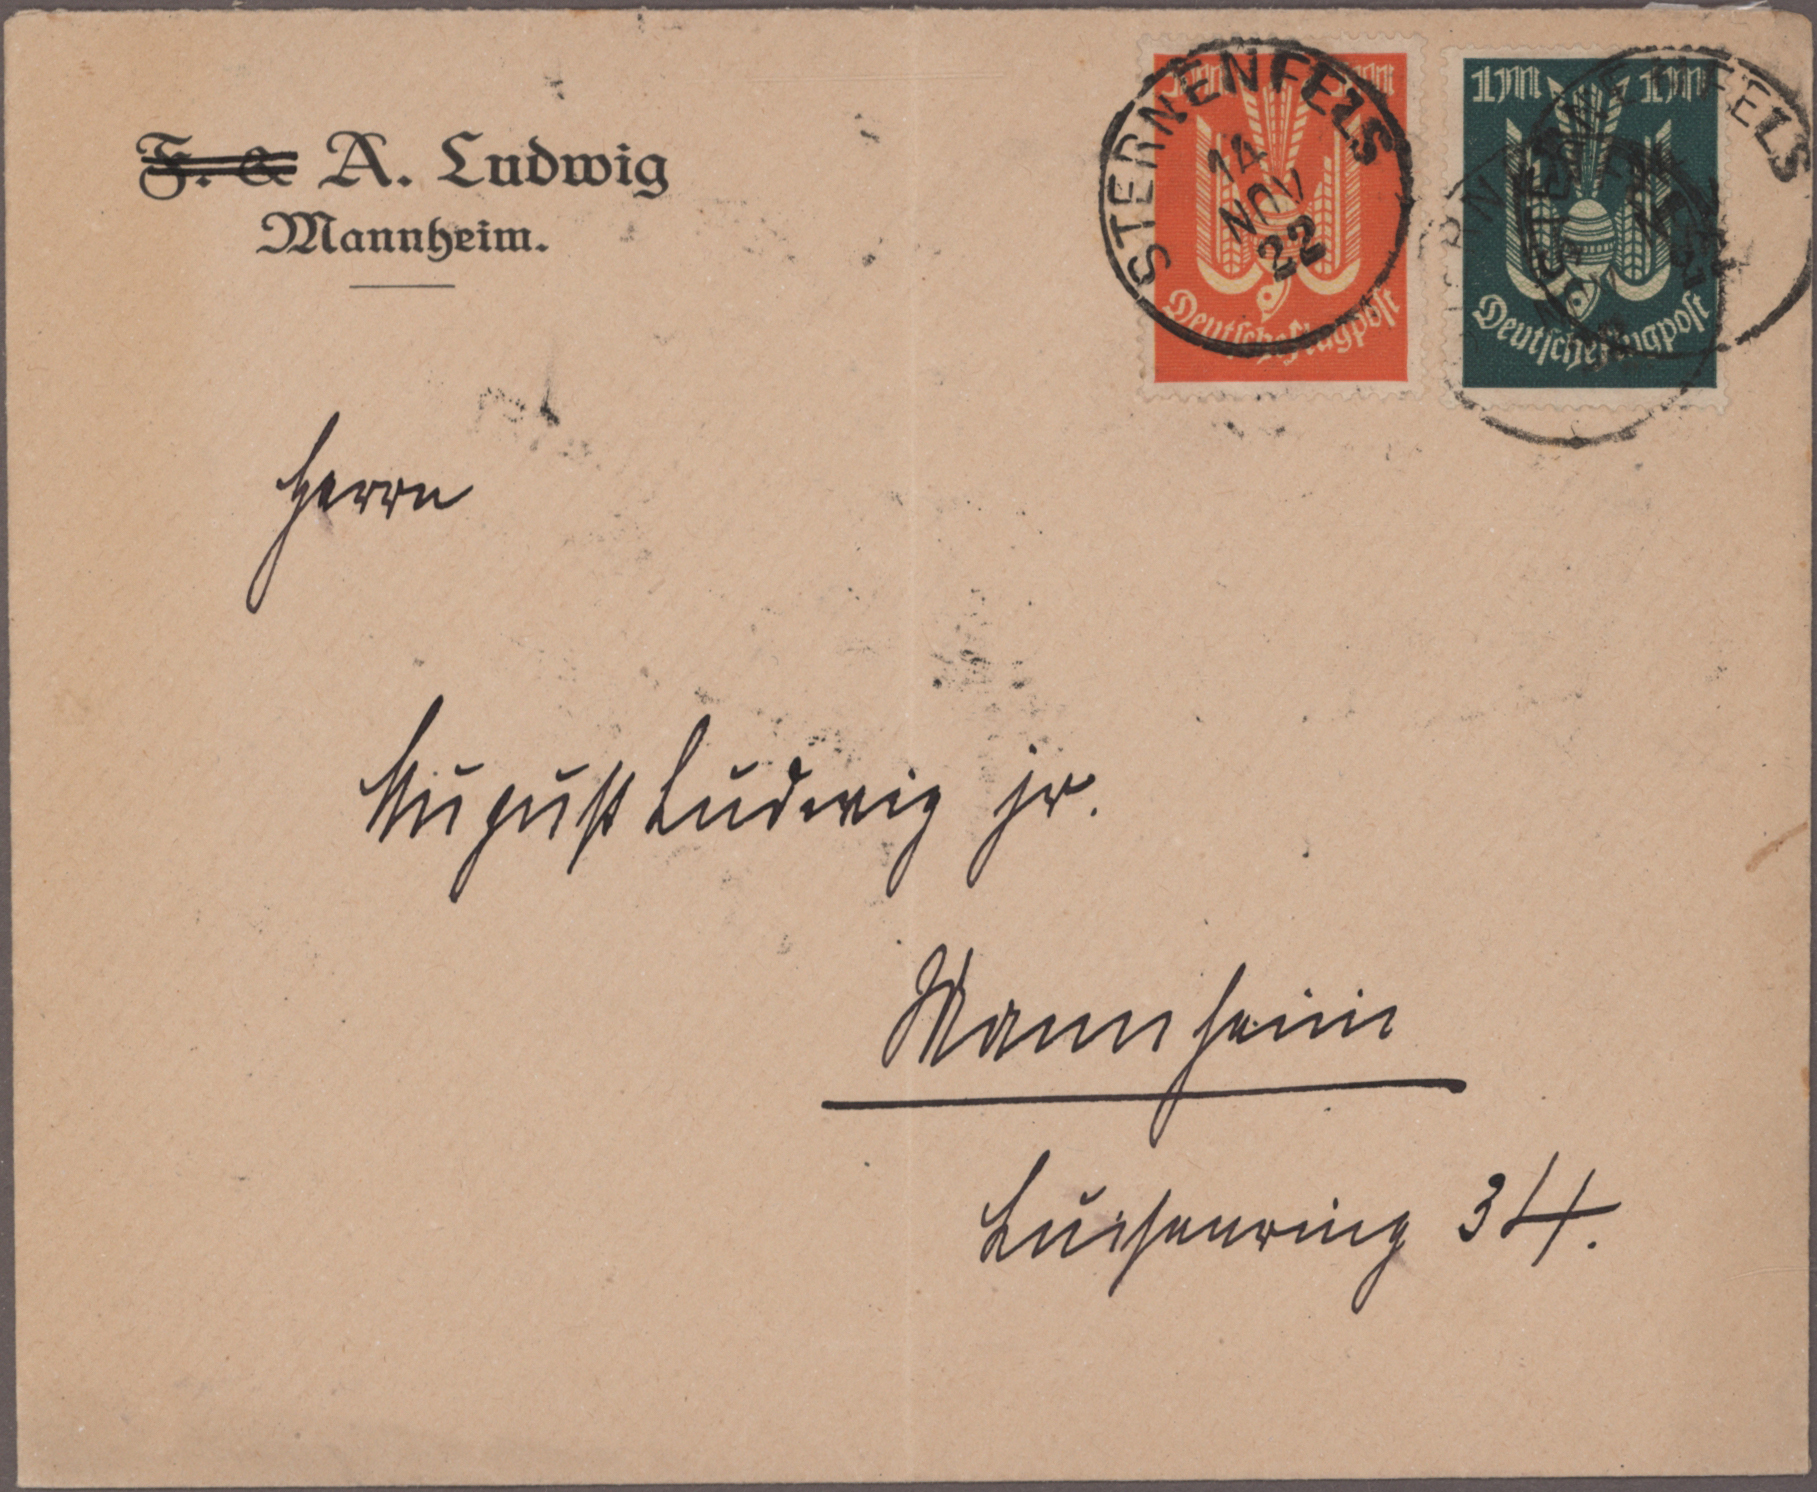 F. & A. Ludwig
Mannheim.
STERNENFELS
14
NOV
22
Deutsche Flugpost
1M 1M
STERNENFELS
Deutsche Flugpost
Herrn
August Ludwig jr.
Mannheim
Luisenring 34.